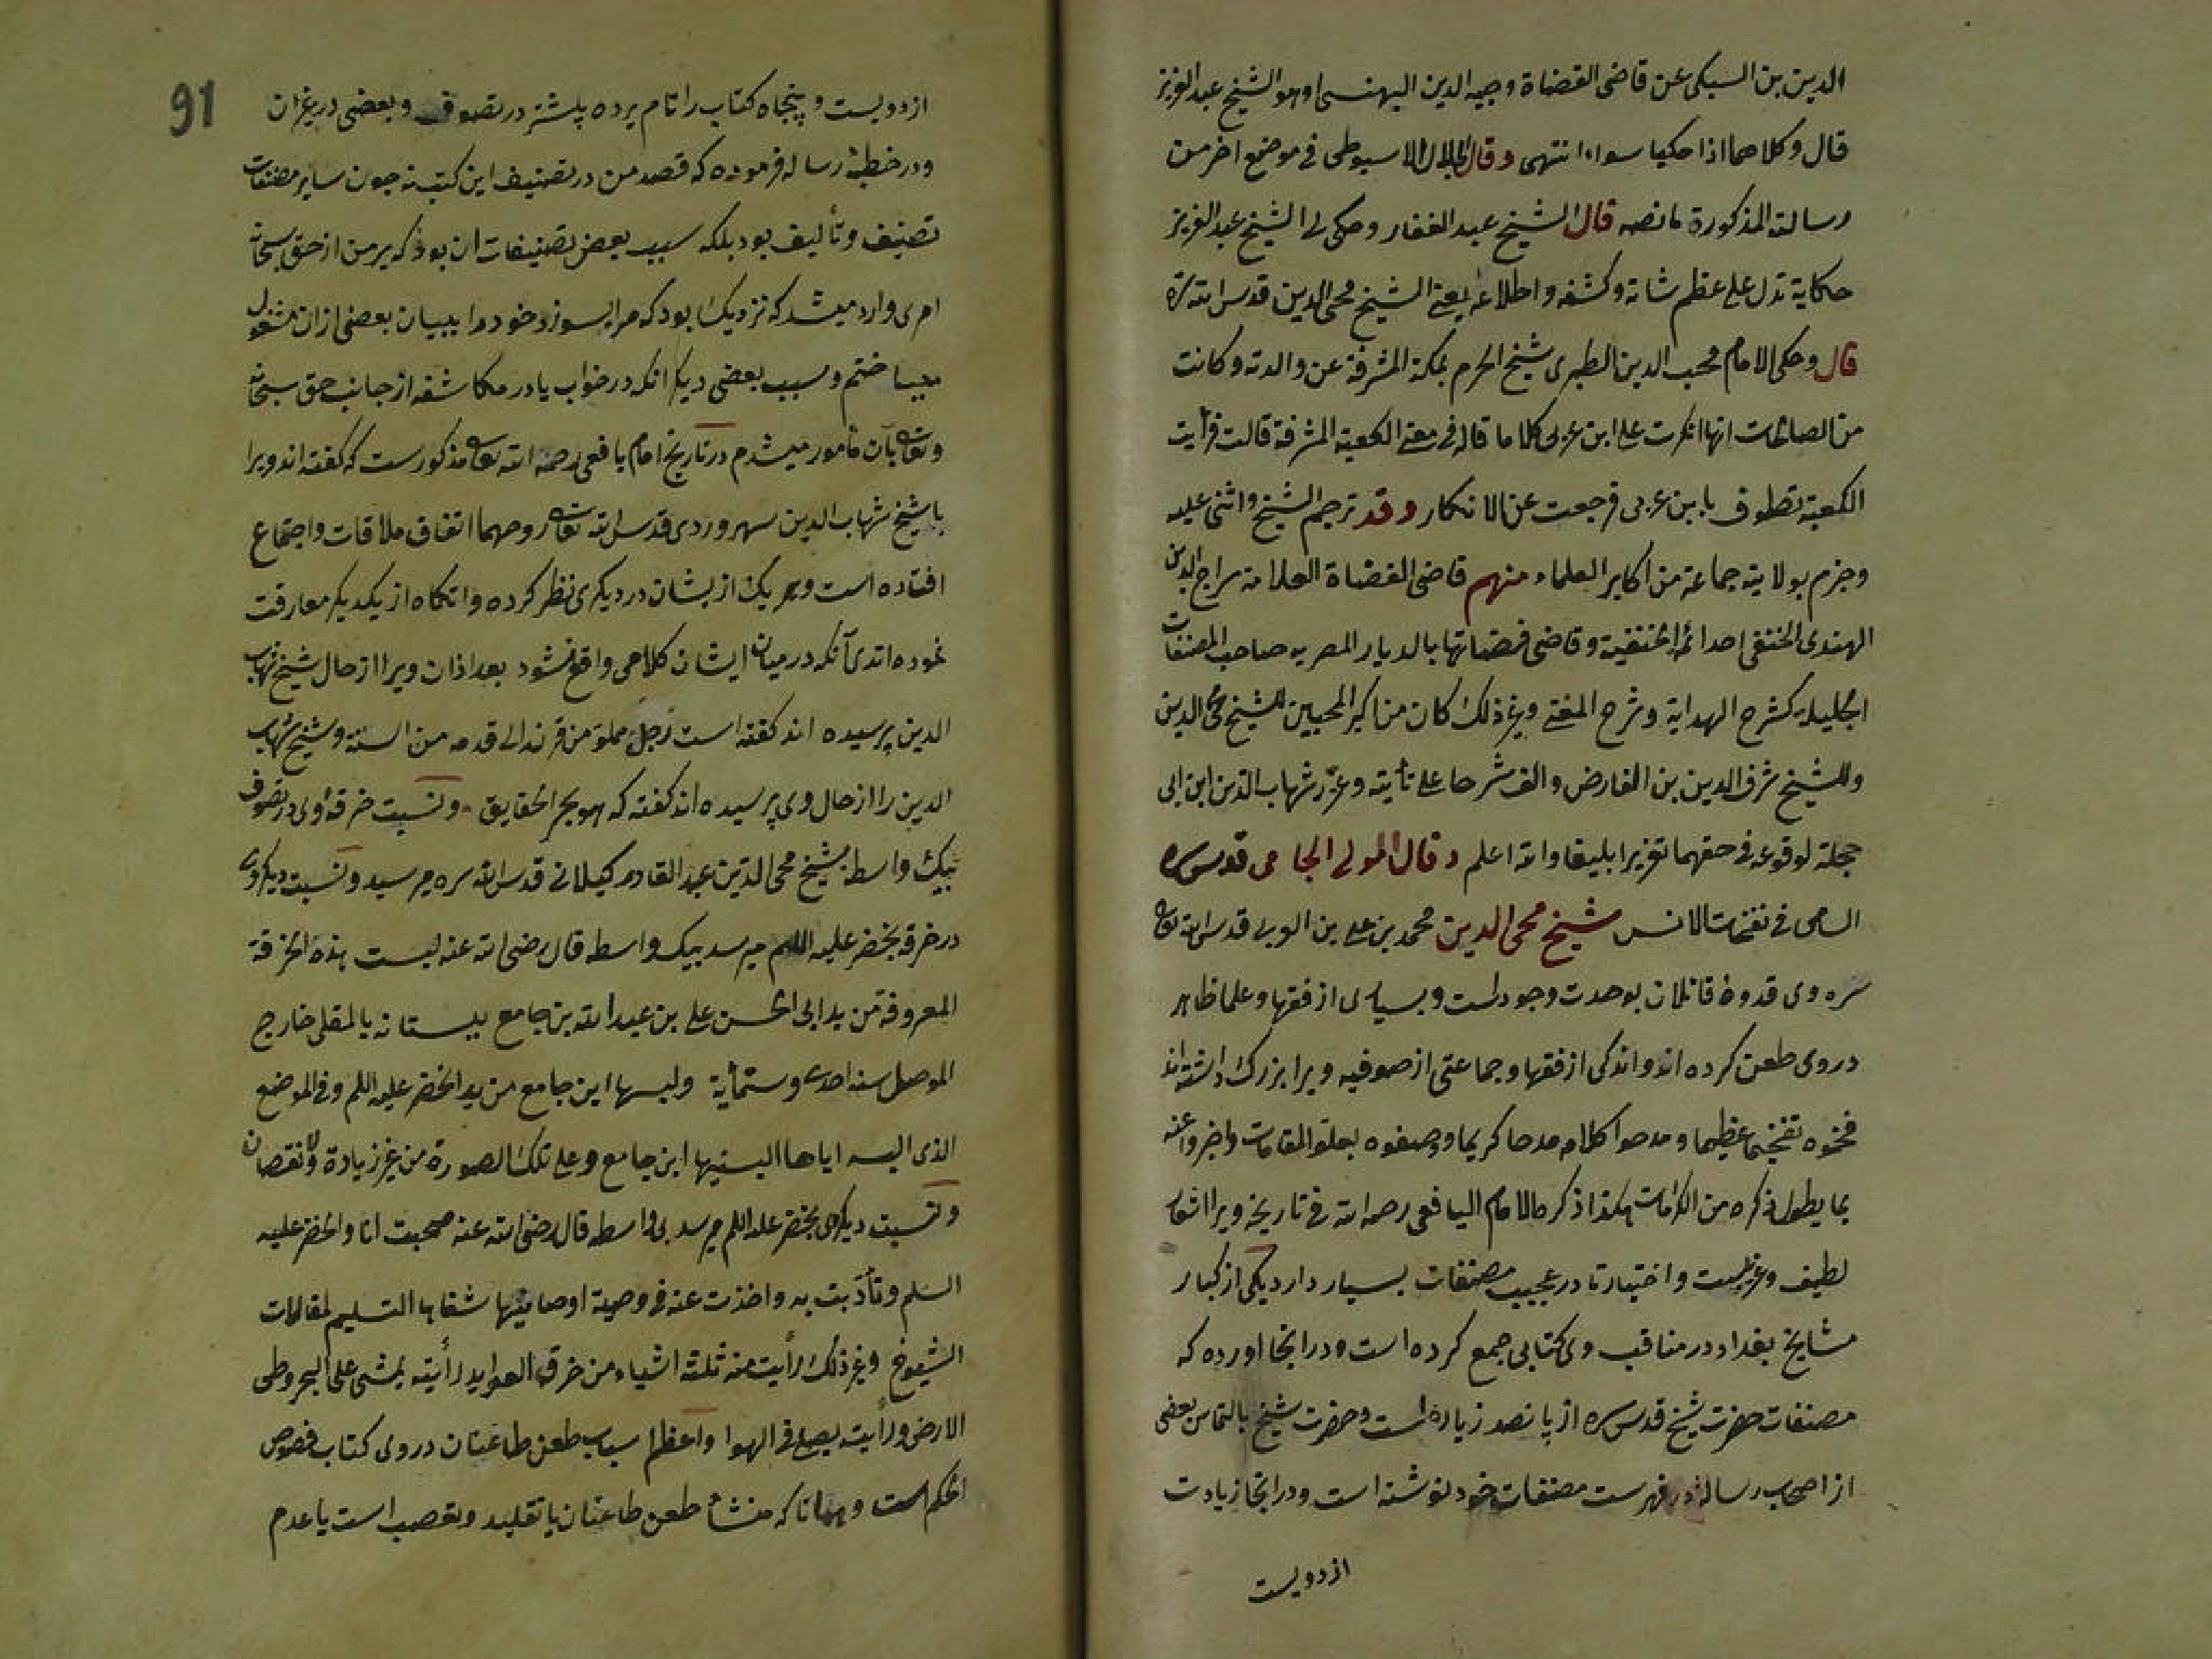 الدين بن السبكى عن قاضى القضاة وجيه الدين البهنسى او هو الشيخ عبد العزيز
قال وكلاهما اذا حكيا سواء انتهى وقال الجلال الاسيوطى فى موضع اخر من
رسالته المذكورة ما نصه قال الشيخ عبد الغفار وحكى لى الشيخ عبد العزيز
حكاية تدل على عظم شانه وكشفه واطلاعه يعنى الشيخ محى الدين قدس الله سره
قال وحكى الامام محب الدين الطبرى شيخ الحرم بمكة المشرفة عن والدته وكانت
من الصالحات انها انكرت على ابن عربى كلاما قاله فى معنى الكعبة المشرفة قالت فرأيت
الكعبة تطوف بابن عربى فرجعت عن الانكار وقد ترجم الشيخ واثنى عليه
وجزم بولايته جماعة من اكابر العلماء منهم قاضى القضاة العلامة سراج الدين
الهندى الحنفى احد ائمة الحنفية وقاضى قضاتها بالديار المصريه صاحب المصنفات
الجليلة كشرح الهداية وشرح المغنى وغير ذلك كان من اكبر المحبين للشيخ محى الدين
وللشيخ شرف الدين بن الفارض والف شرحا على تائيته وعزر شهاب الدين ابن ابى
حجلة لوقوعه فى حقهما تعزيرا بليغا والله اعلم وقال المولى الجامى قدس سره
السامى فى نفحات الانس شيخ محى الدين محمد بن على بن العربى قدس الله تعالى
سره وى قدوة قائلان بوحدت وجود است وبسيارى از فقها وعلما ظاهر
دروى طعن كرده اند واندكى از فقها وجماعتى از صوفيه ويرا بزرك داشته اند
فخموه تفخيما عظيما ومدحوا كلامه مدحا كريما ووصفوه بعلو المقامات واخبروا عنه
بما يطول ذكره من الكرامات هكذا ذكره الامام اليافعى رحمه الله فى تاريخه ويرا اشعار
لطيف وغريبست واخبار نادر عجيب مصنفات بسيار دارد يكى از كبار
مشايخ بغداد در مناقب وى كتابى جمع كرده است ودر انجا اورده كه
مصنفات حضرت شيخ قدس سره از پانصد زياده است وحضرت شيخ بالتماس بعضى
از اصحاب رساله در فهرست مصنفات خود نوشته است ودر انجا زيادت
از دويست
91
از دويست وپنجاه كتاب را نام برده پيشتر در تصوف وبعضى در غير ان
ودر خطبه رساله فرموده كه قصد من در تصنيف اين كتب نه چون ساير مصنفات
تصنيف وتأليف بود بلكه سبب بعض تصنيفات ان بود كه بر من از حق سبحانه
امرى وارد ميشد كه نزديك بود كه مرا بسوزد خود را ببيان بعضى ازان مشغول
ميساختم وسبب بعضى ديكر انكه در خواب يا در مكاشفه از جانب حق سبحانه
وتعالى بآن مأمور ميشدم در تاريخ امام يافعى رحمه الله تعالى مذكورست كه كفته اند ويرا
با شيخ شهاب الدين سهروردى قدس الله تعالى روحهما اتفاق ملاقات واجتماع
افتاده است وهر يك ازيشان در ديكرى نظر كرده وانكاه از يكديكر مفارقت
نموده اند بى آنكه درميان ايشان كلامى واقع شود بعد ازان ويرا از حال شيخ شهاب
الدين پرسيده اند كفته است رجل مملو من قرنه الى قدمه من السنة وشيخ شهاب
الدين را از حال وى پرسيده اند كفته كه هو بحر الحقايق ونسبت خرقه وى در تصوف
بيك واسطه بشيخ محى الدين عبد القادر كيلانى قدس الله سره ميرسيد ونسبت ديكر وى
در خرقه بخضر عليه السلم ميرسد بيك واسطه قال رضى الله عنه لبست هذه الخرقة
المعروفة من يد ابى الحسن على بن عبد الله بن جامع ببستانه بالمقلى خارج
الموصل سنه احدى وستمائة ولبسها ابن جامع من يد الخضر عليه السلم وفى الموضع
الذى البسه اياها البسنيها ابن جامع وعلى تلك الصورة من غير زيادة ولا نقصان
ونسبت ديكرى بخضر عليه السلم ميرسد بى واسطه قال رضى الله عنه صحبت انا والخضر عليه
السلم وتأدبت به واخذت عنه فى وصية اوصانيها شفاها التسليم لمقالات
الشيوخ وغير ذلك رأيت منه ثلثة اشياء من خرق العوايد رأيته يمشى على البحر وطى
الارض ورأيته يصلى فى الهوا واعظم اسباب طعن طاعنان دروى كتاب فصوص
الحكم است وهمانا كه منشأ طعن طاعنان يا تقليد وتعصب است يا عدم